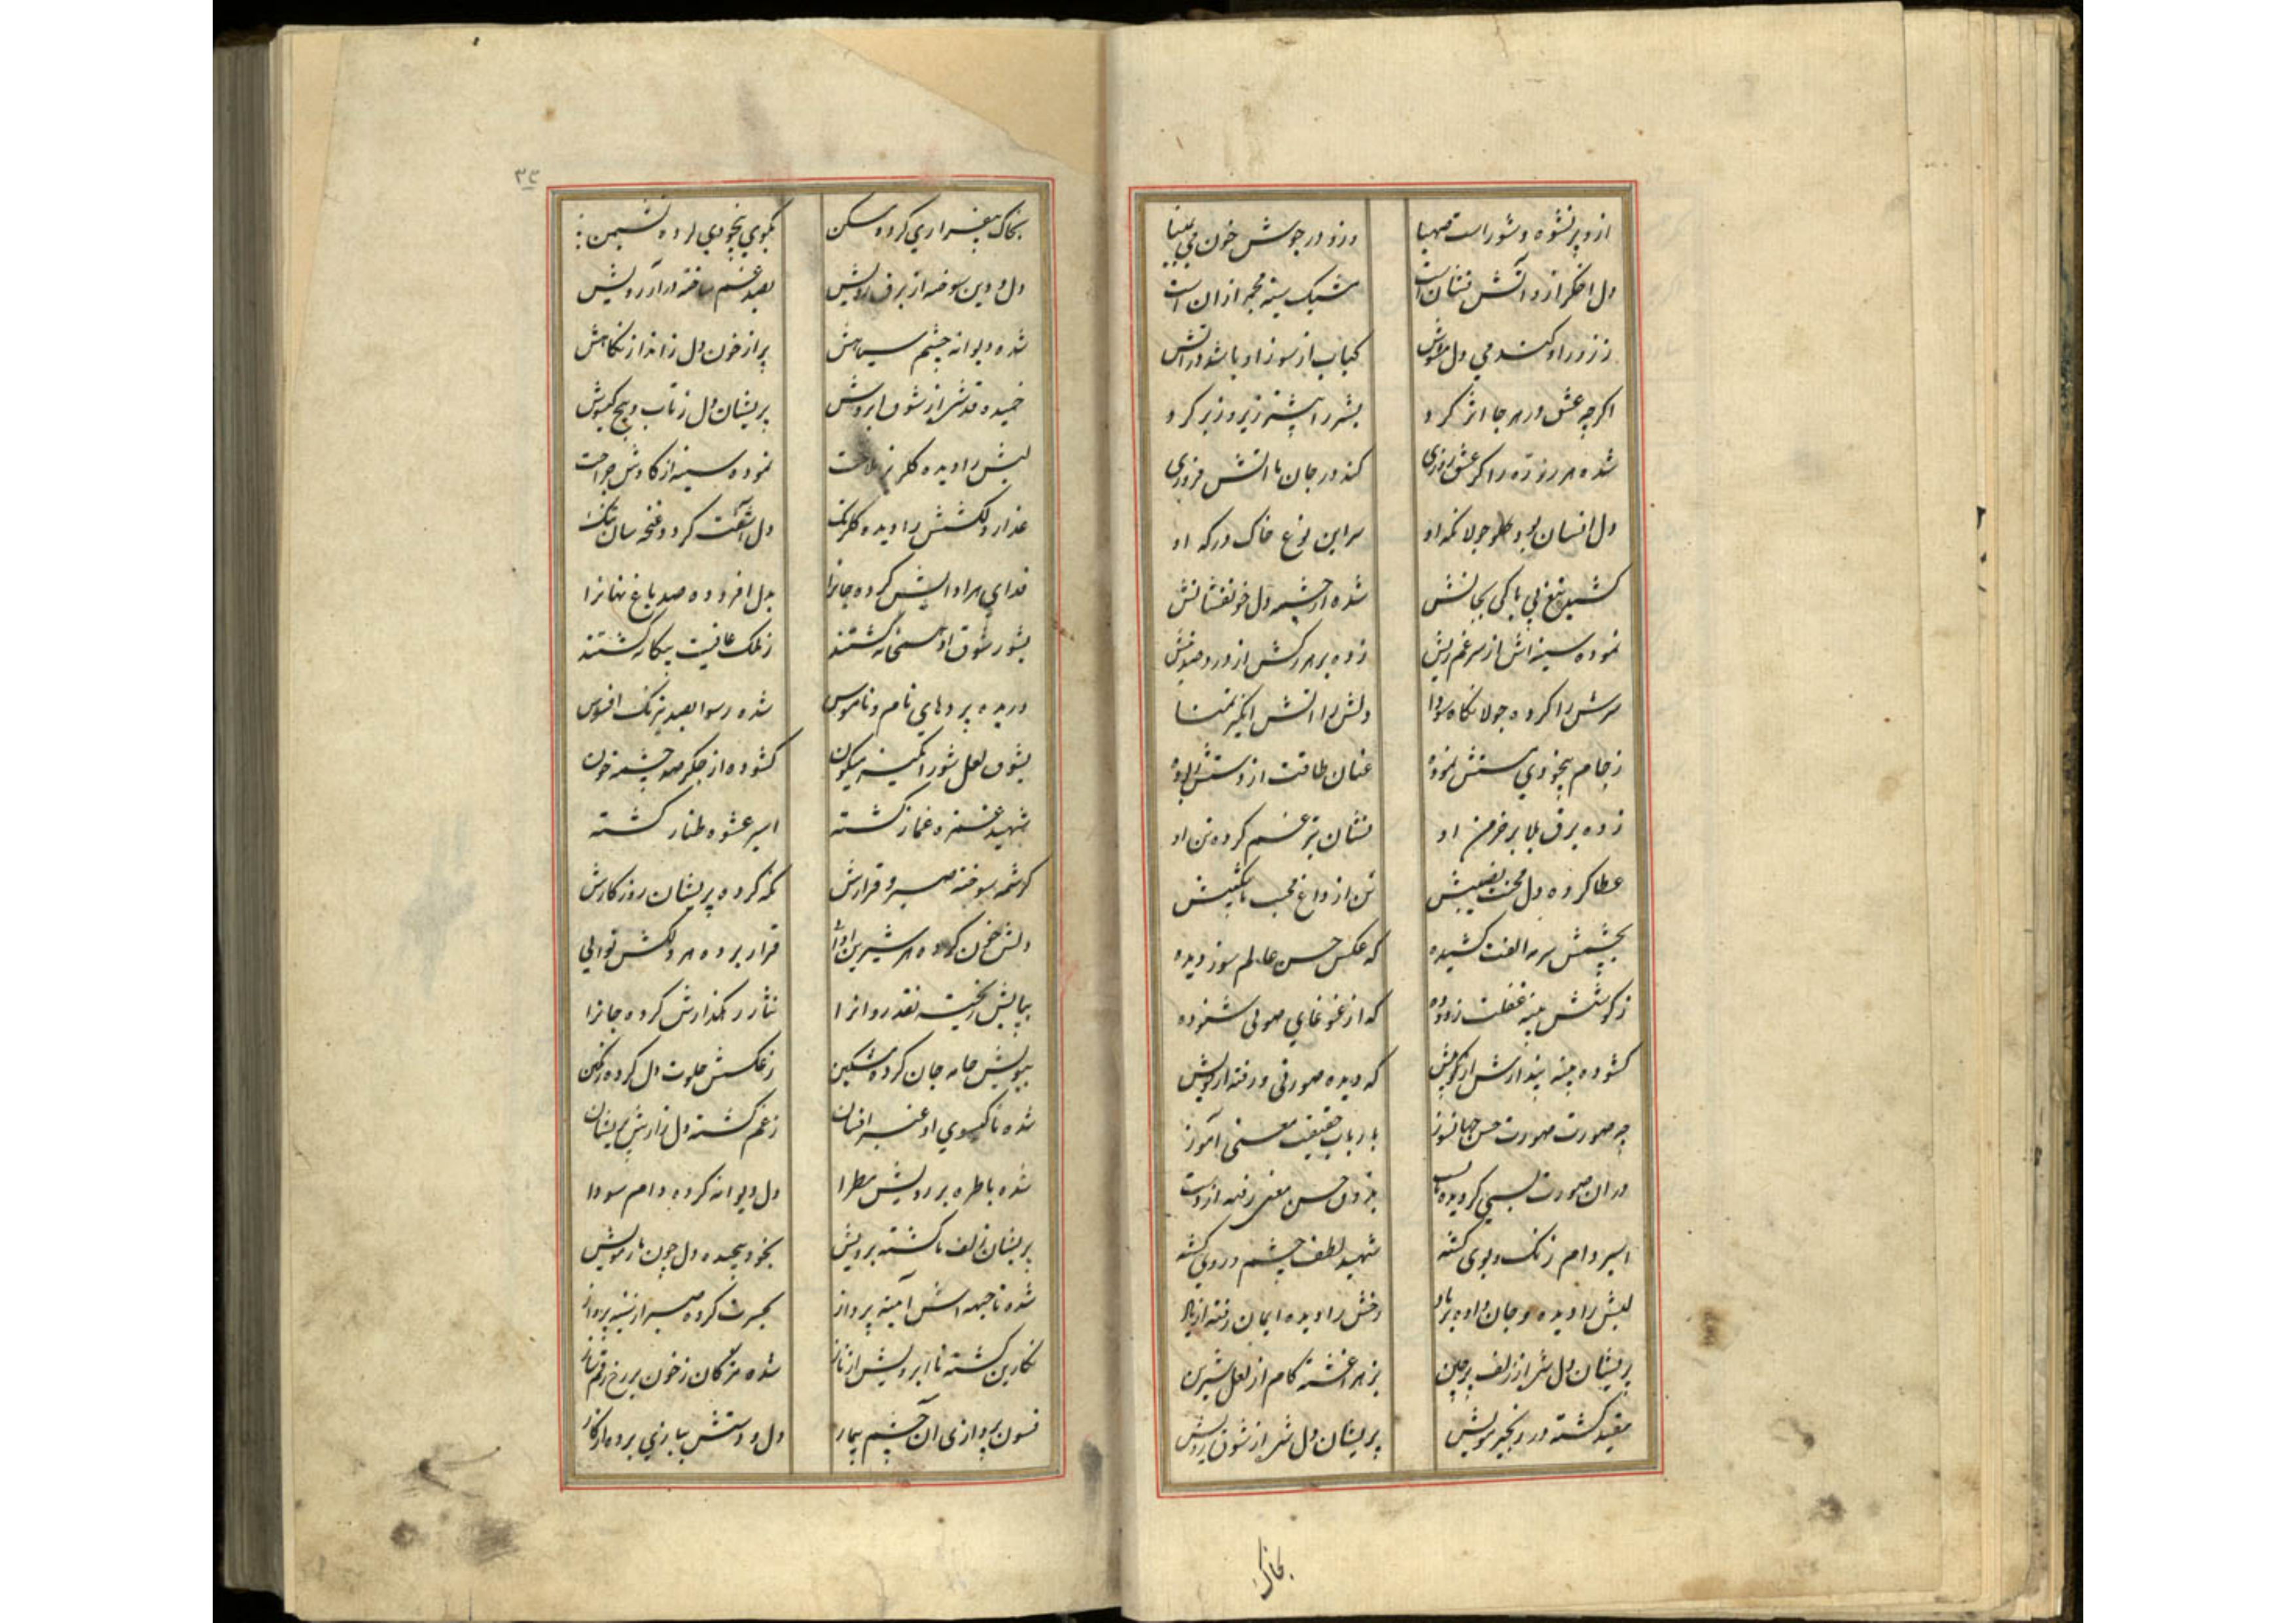 ازو پر نشوه و شور است صهبا    وزو در جوش خون می بمینا
دل اخگر ازو آتش نشان است    مشبک سینه مجمر ازان است
ز زور او کند می دل مشوش    کباب از سوز او باشد در آتش
اکرچه عشق در هر جا اثر کرد    بشر را بیشتر زیر و زبر کرد
شده هر ذره را کر عشق روزی    کند در جان ما آتش فروزی
دل انسان بود جولانکه او    سر این نوع خاک درکه او
کشیده تیغ بی باکی بجانش    شده از چشمه دل خونفشانش
نموده سینه اش از سر غم ریش    زده بر هر رکش از درد صد نیش
سرش را کرده جولانکاه سودا    دلش را آتش انکیز تمنا
ز جام بیخودی مستش نموده    عنان طاقت از دستش ربوده
زده برق بلا بر خرمن او    نشان تیر غم کرده تن او
عطا کرده دل محنت نصیبش    تن از داغ محبت
بچشمش سرمه الفت کشیده    که عکس حسن عالم سوز دیده
ز کوشش پنبه غفلت زدوده    که از غوغای صوتی شنوده
کشوده پنبه پندارش از کوش    که دیده صورتی و رفته از هوش
چه صورت صورت حسن جهانسوز    بارباب حقیقت معنی آموز
دران صورت بسی کردیده    بذوق حسن معنی رفته از دست
اسیر دام رنک و بوی کشته    شهید لطف چشم و روی کشته
لبش را دیده و جان داده بر باد    رخش را دیده ایمان رفته از یاد
پریشان دل شد از زلف پرچین    بزهر آغشته کام از لعل شیرین
مقید کشته در زنجیر مویش    پریشان دل شد از شوق رویش
بخاک
۳۴
بخاک بیقراری کرده مسکن    بکوی بیخودی کرده نشیمن
دل و دین سوخته از برق رویش    بصد غم ساخته در آرزویش
شده دیوانه چشم سیاهش    پر از خون دل ز انداز نکاهش
خمیده قدش از شوق ابرویش    پریشان دل ز تاب و پیچ کیسویش
لبش را دیده ملاحت    نموده سینه از کاوش جراحت
عذار دلکشش را دیده کلرنک    دل آشفته کردد غنچه سان تنک
فدای هر ادایش کرده جانرا    بدل افزوده صد داغ نهانرا
بشور شوق او همخانه کشتند    ز ملک عافیت بیکانه کشتند
دریده پردهای نام و ناموس    شده رسوا بصد نیرنک افسوس
بشوق لعل شور انکیز میکون    کشوده از جکر صد چشمه خون
شهید غمزه غماز کشته    اسیر عشوه طناز کشته
کرشمه سوخته صبر و قرارش    نکه کرده پریشان روزکارش
دلش خون کرده هر شیرین ادائی    قرار برده هر دلکش نوایی
بپایش ریخته نقد روانرا    نثار رهکذارش کرده جانرا
ببویش جامه جان کرده مشکین    ز عکسش خلوت دل کرده رنکین
شده تا کیسوی او عنبر افشان    ز غم کشته دل زارش پریشان
شده با طره بر رویش مطرا    دل دیوانه کرده دام سودا
پریشان زلف تا کشته برویش    بخود پیچیده دل چون تار مویش
شده تا جبهه اش آینه پرداز    بحیرت کرده صبر از سینه پرواز
نکارین کشته تا ابرویش از ناز    شده مژکان ز خون بر رخ رقم ساز
فسون پردازی آن چشم بیمار    دل و دستش ببازی برده از کار